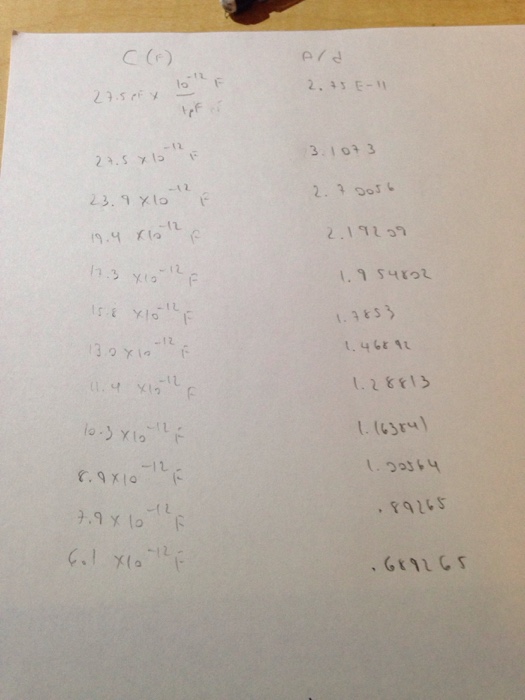 C (F) A/d
27.5 pF x 10^-12 F / 1pF 2.75 E-11
27.5 x10^-12 F 3.1073
23.9 x10^-12 F 2.70056
19.4 x10^-12 F 2.19209
17.3 x10^-12 F 1.954802
15.8 x10^-12 F 1.7853
13.0 x10^-12 F 1.46892
11.4 x10^-12 F 1.28813
10.3 x10^-12 F
8.9 x10^-12 F 1.00564
7.9 x 10^-12 F .89265
6.1 x10^-12 F .689265